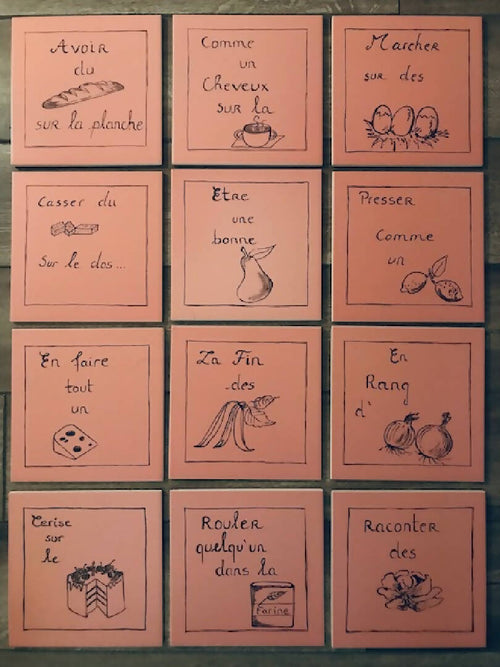 Avoir
du
sur la planche
Comme
un
Cheveux
sur la
Marcher
sur des
Casser du
Sur le dos...
Etre
une
bonne
Presser
Comme
un
En faire
tout
un
La Fin
des
En
Rang
d'
Cerise
sur
le
Rouler
quelqu'un
dans la
Farine
Raconter
des